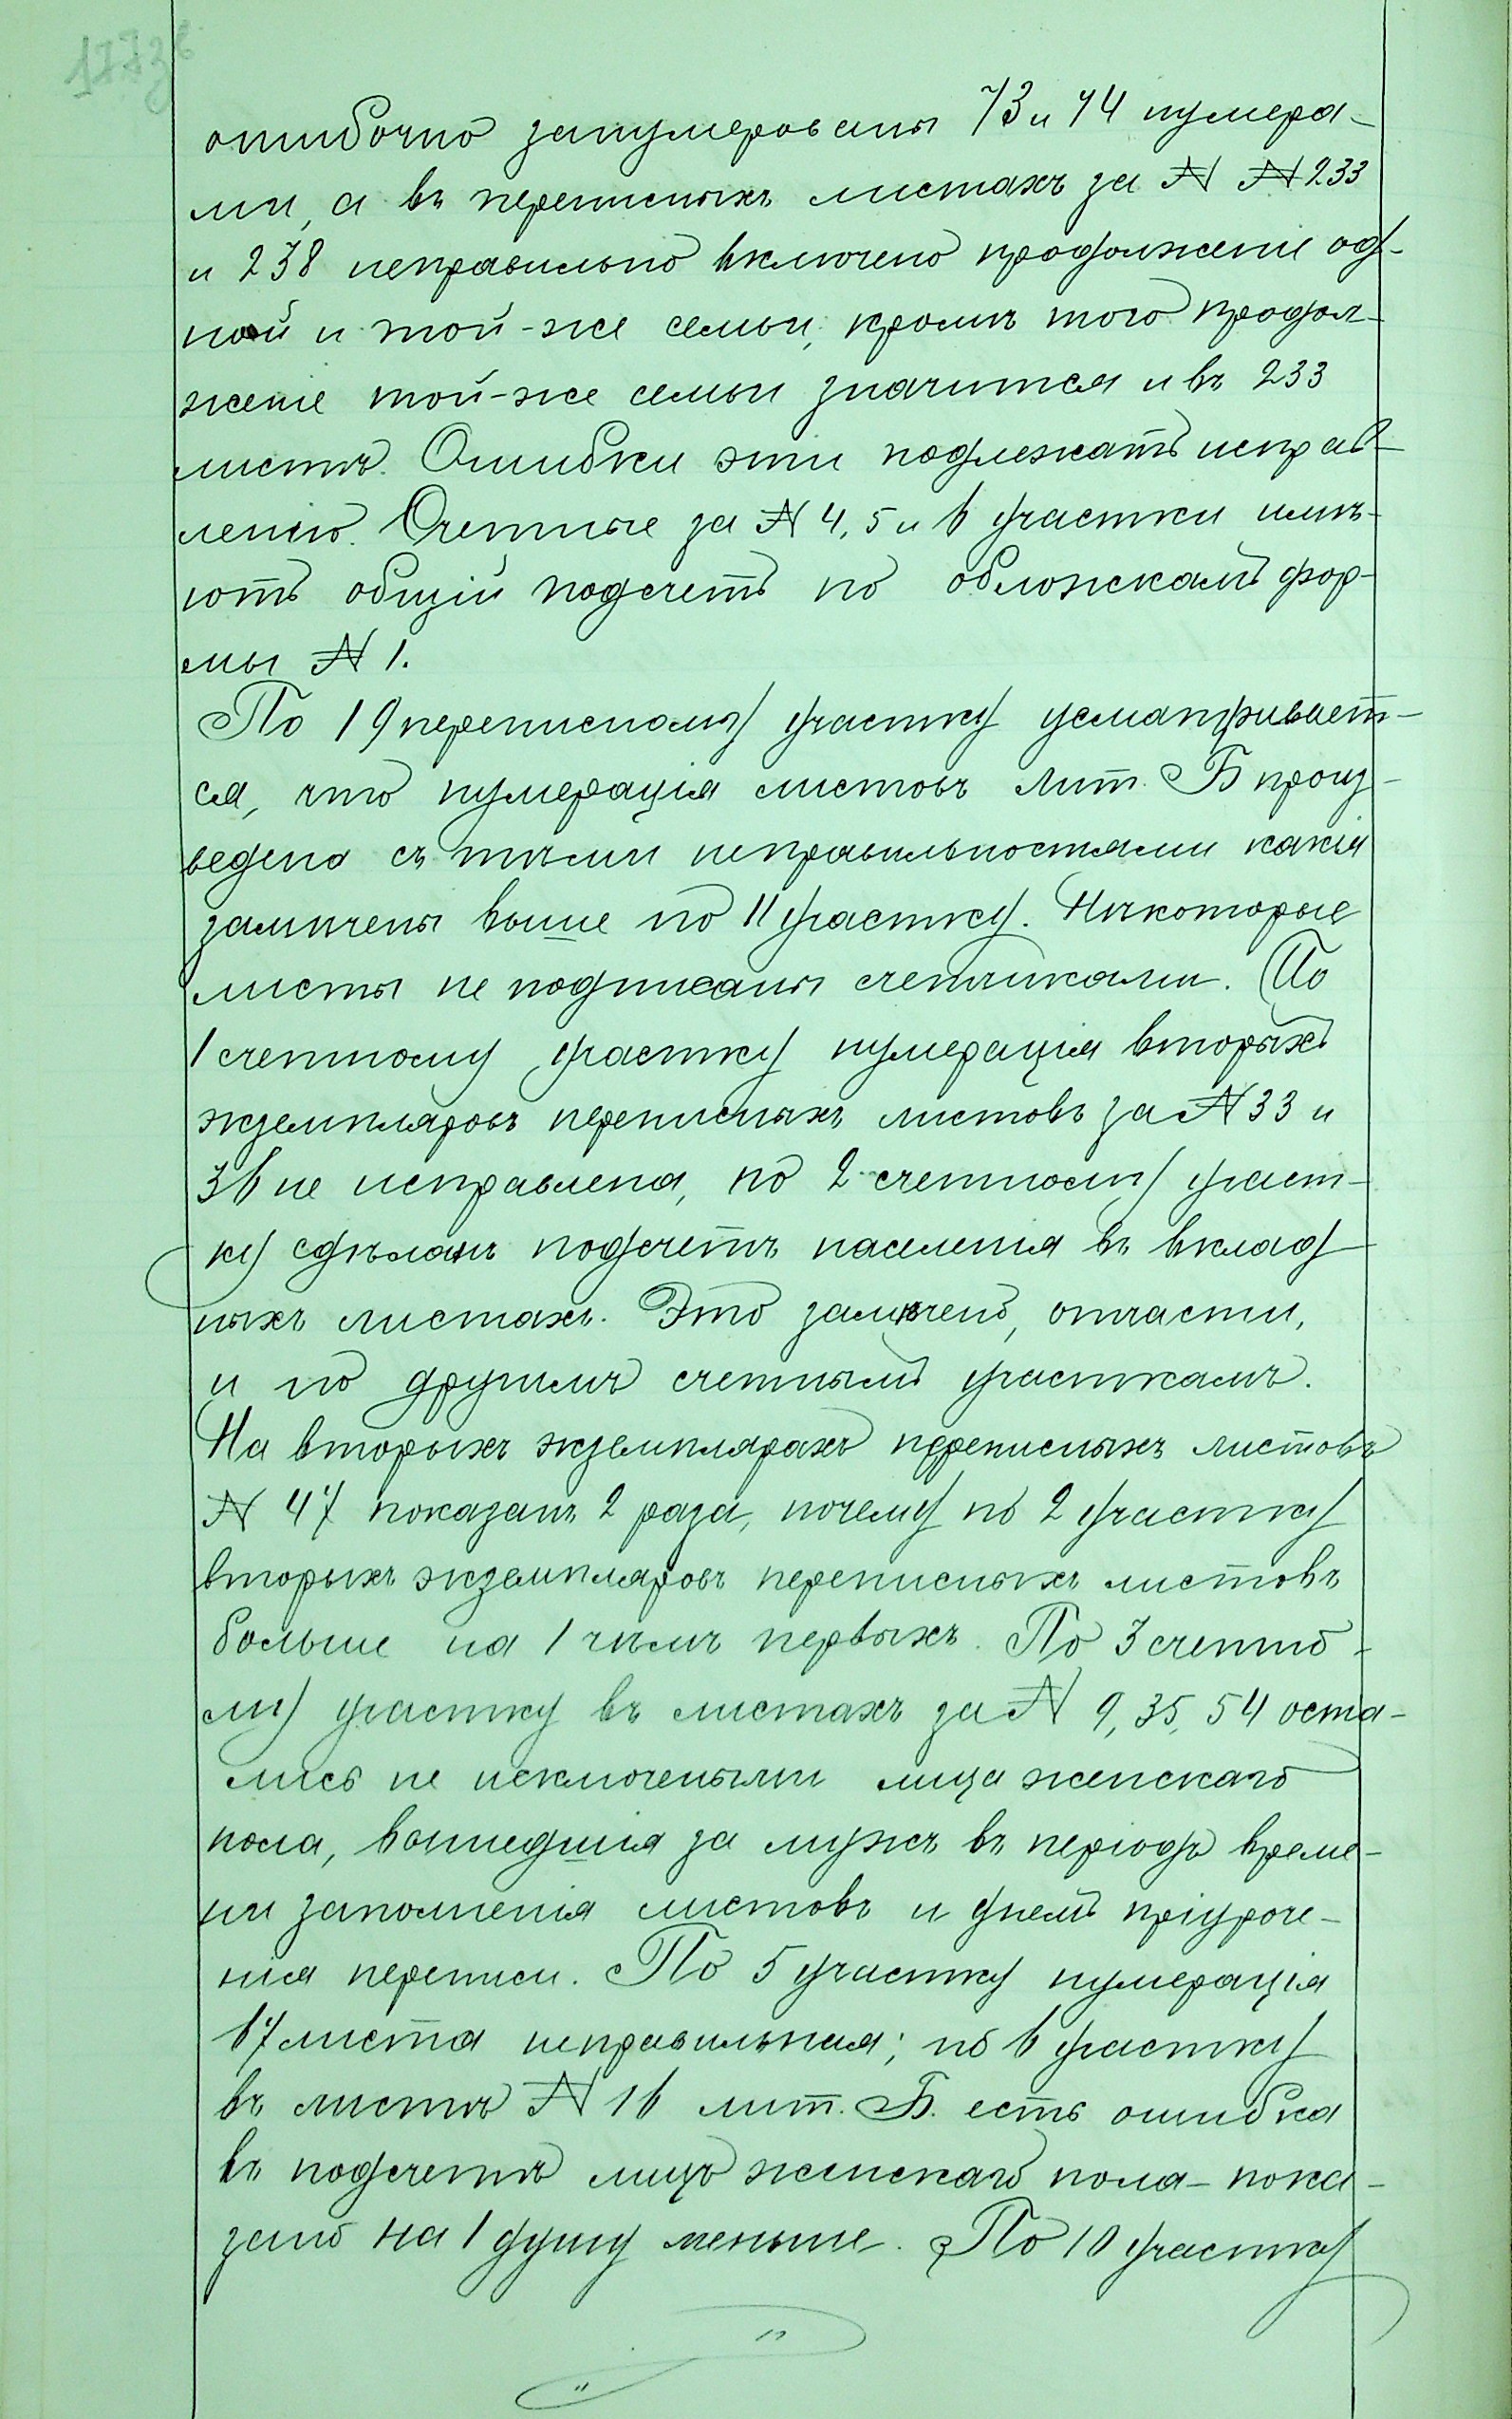 ошибочно занумерованы 73 и 74 нумера-
ми, а въ переписныхъ листахъ за № № 233
и 238 неправильно включено продолженіе од-
ной и той-же семьи, кромѣ того продол-
женіе той-же семьи значится и въ 233
листѣ. Ошибки эти подлежатъ исправ-
ленію. Счетные за № 4, 5 и 6 участки имѣ-
ютъ общій подсчетъ по обложкамъ фор-
мы № 1.
По 19 переписному участку усматривает-
ся, что нумерація листовъ лит. Б произ-
ведена съ тѣми неправильностями какія
замѣчены выше по 11 участку. Нѣкоторые
листы не подписаны счетчиками. По
1 счетному участку нумерація вторыхъ
экземпляровъ переписныхъ листовъ за № 33 и
36 не исправлена, по 2 счетному участ-
ку сдѣланъ подсчетъ населенія въ вклад-
ныхъ листахъ. Это замѣчено, отчасти,
и по другимъ счетнымъ участкамъ.
На вторыхъ экземплярахъ переписныхъ листовъ
№ 47 показанъ 2 раза, почему по 2 участку
вторыхъ экземпляровъ переписныхъ листовъ
больше на 1 чѣмъ первыхъ. По 3 счетно-
му участку въ листахъ за № 9, 35, 54 оста-
лись не исключеными лица женскаго
пола, вошедшія за мужъ въ періодъ време-
ни заполненія листовъ и днемъ пріуроче-
нія переписи. По 5 участку нумерація
67 листа неправильная; по 6 участку
въ листѣ № 16 лит. Б. есть ошибка
въ подсчетѣ лицъ женскаго пола - пока-
зано на 1 душу меньше. По 10 участку